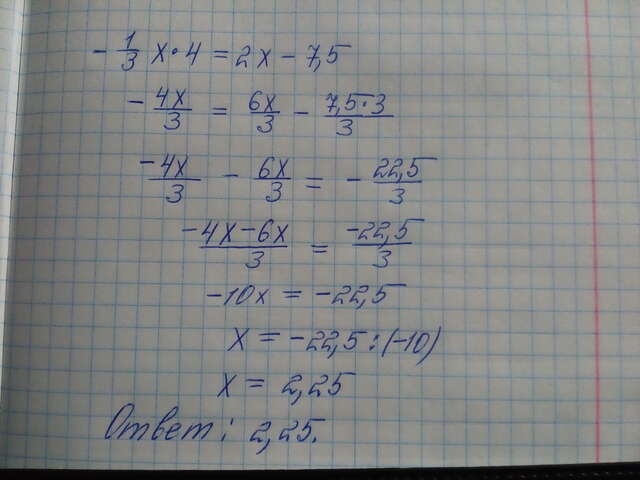 -1/3 x·4 = 2x - 7,5
-4x/3 = 6x/3 - 7,5·3/3
-4x/3 - 6x/3 = -22,5/3
-4x-6x/3 = -22,5/3
-10x = -22,5
x = -22,5:(-10)
x = 2,25
Ответ: 2,25.